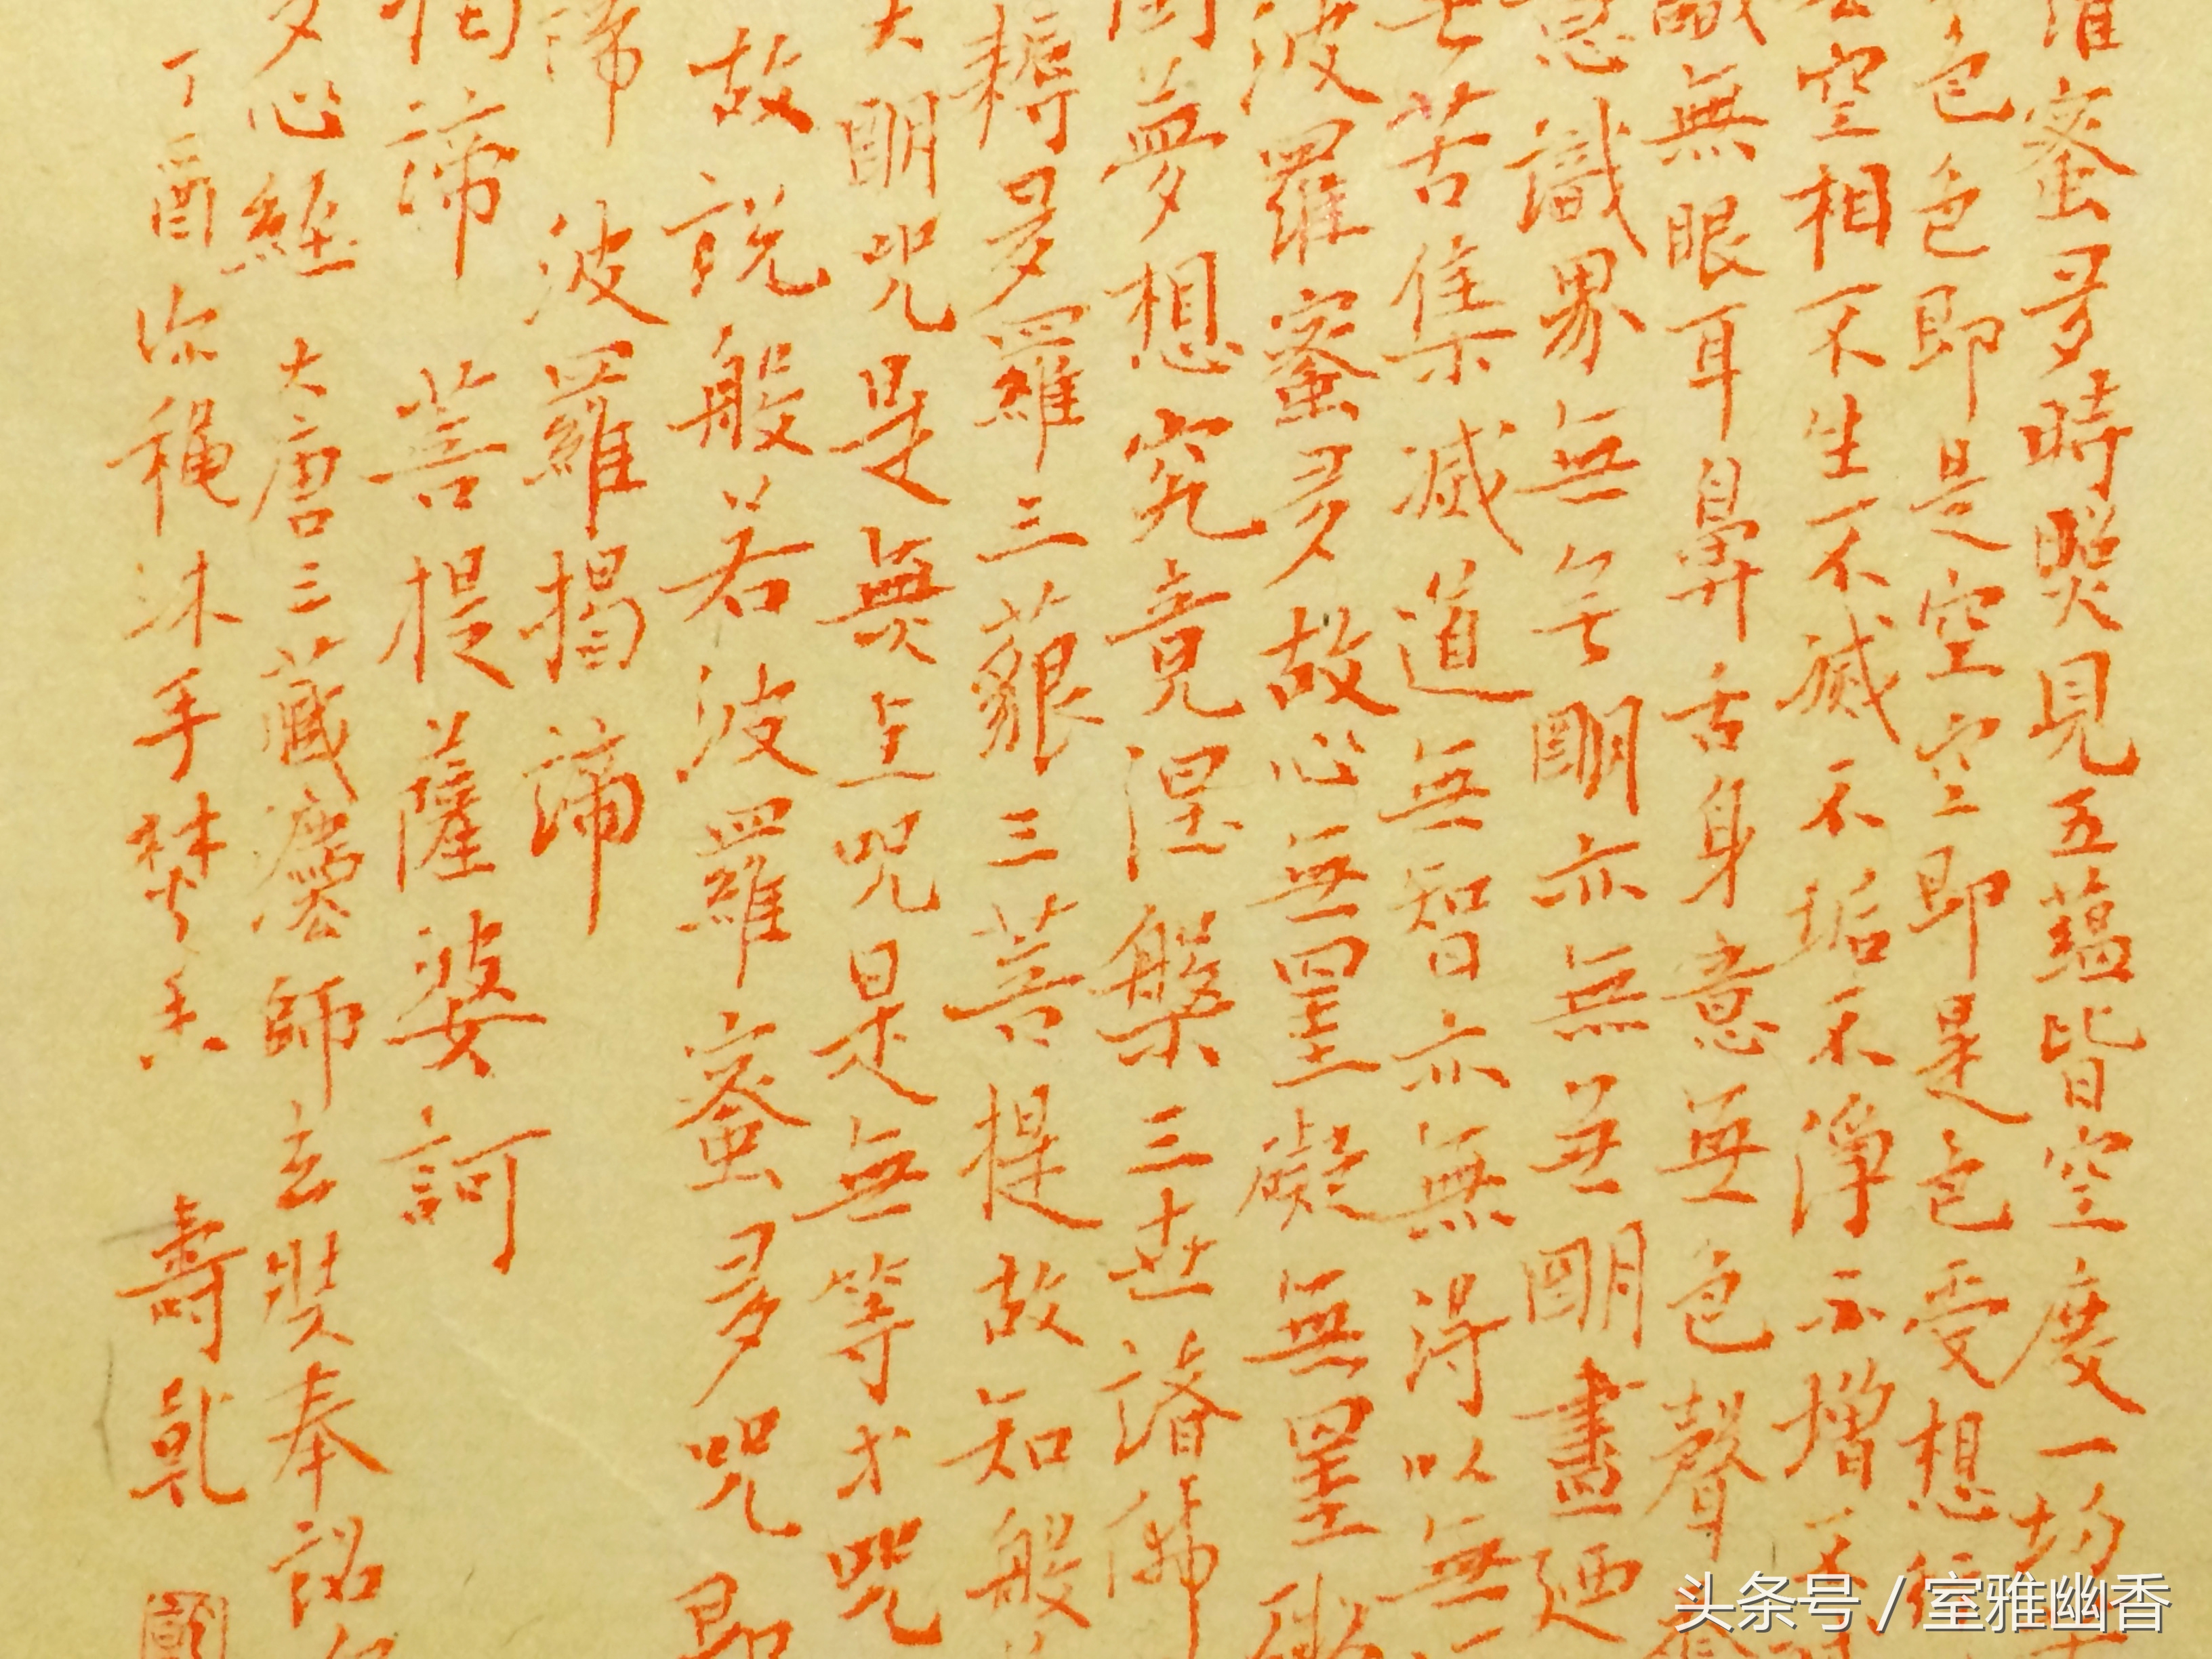 蜜多時照見五蘊皆空度一切
色色即是空空即是色受想
空相不生不滅不垢不淨不增
無眼耳鼻舌身意無色聲
意識界無無明亦無無明盡廼
苦集滅道無智亦無得以無
波羅蜜多故心無罣礙無罣
夢想究竟涅槃三世諸佛
耨多羅三藐三菩提故知般
大明咒是無上咒是無等等咒
故說般若波羅蜜多咒即
諦 波羅揭諦
揭諦 菩提薩婆訶
多心經 大唐三藏 師玄奘奉詔
丁酉 秋沐手焚香 壽
头条号 / 室雅幽香